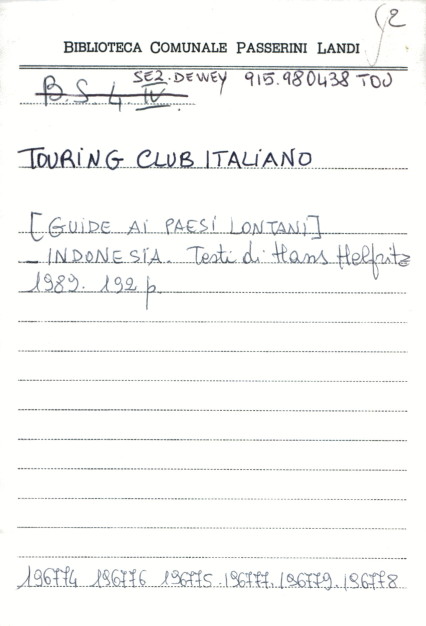 2
BIBLIOTECA COMUNALE PASSERINI LANDI
SEZ. DEWEY 915.980438 TOU
B.S. 4 IV.
TOURING CLUB ITALIANO
[GUIDE AI PAESI LONTANI]
- INDONESIA. Testi di Hans Helfritz
1989. 192 p.
196774 196776 196775. 196777. 196779. 196778